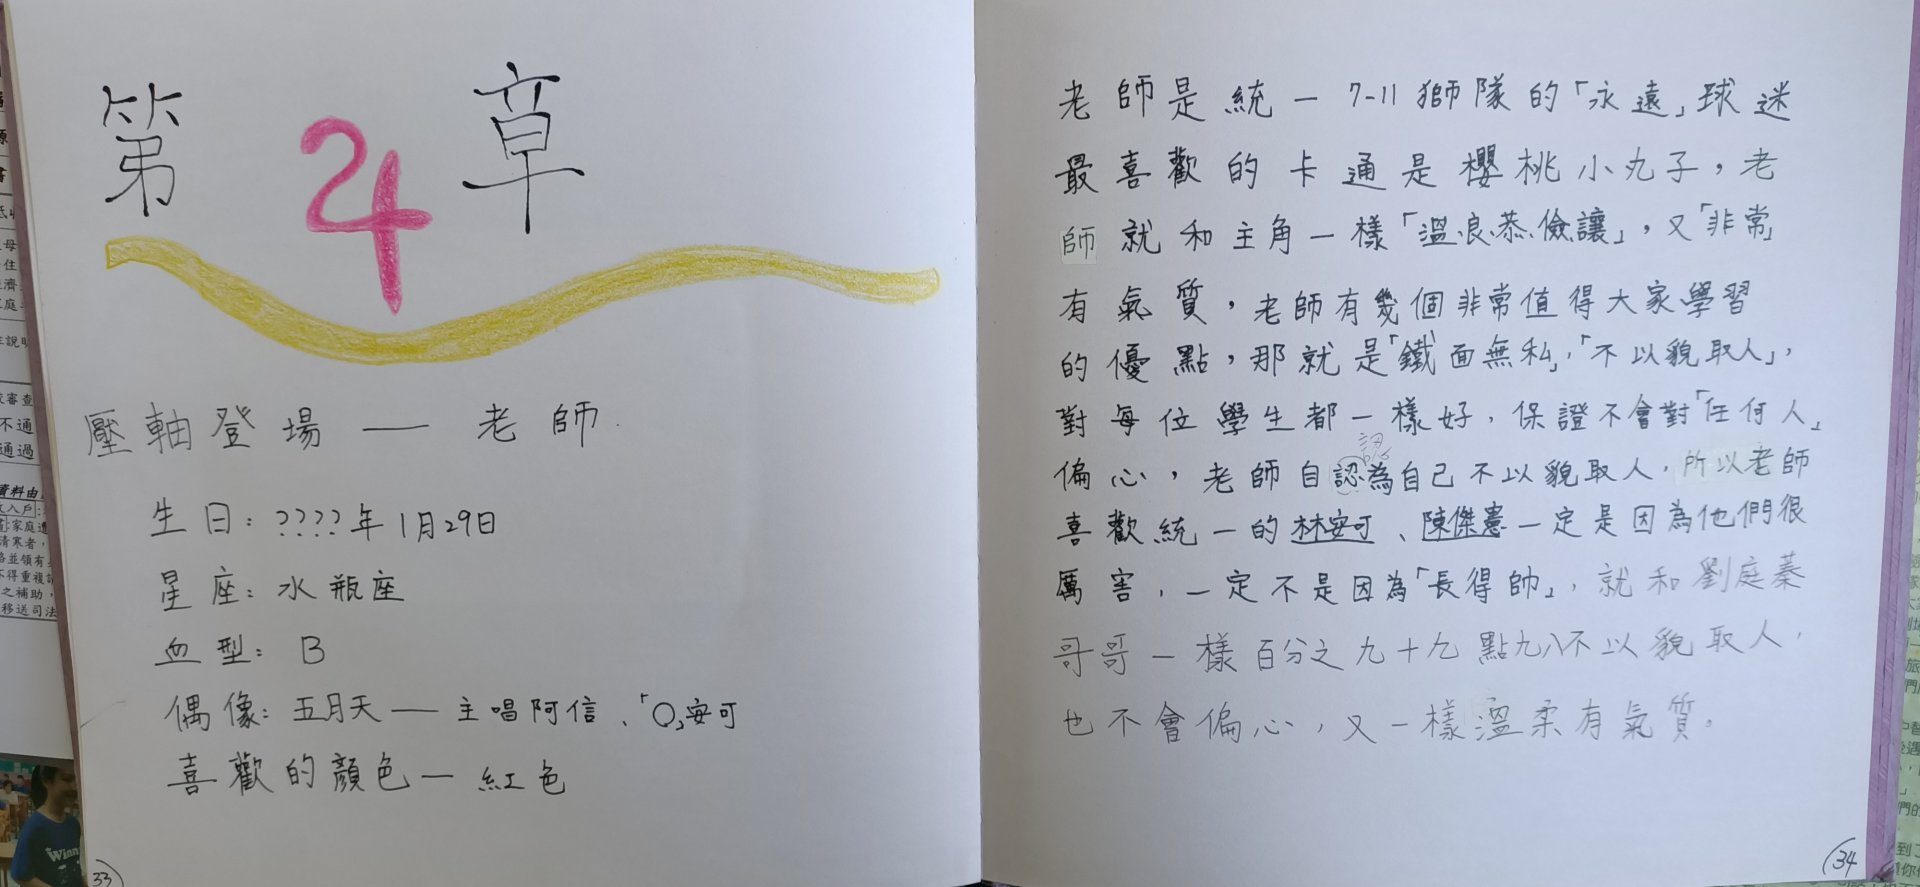 第24章
壓軸登場——老師
生日：????年1月29日
星座：水瓶座
血型：B
偶像：五月天——主唱阿信、「○」安可
喜歡的顏色—紅色
33
老師是統一7-11獅隊的「永遠」球迷
最喜歡的卡通是櫻桃小丸子，老
師就和主角一樣「溫、良、恭、儉讓」，又「非常」
有氣質，老師有幾個非常值得大家學習
的優點，那就是「鐵面無私」，「不以貌取人」，
對每位學生都一樣好，保證不會對「任何人」
偏心，老師自認為自己不以貌取人，所以老師
喜歡統一的林安可、陳傑憲一定是因為他們很
厲害，一定不是因為「長得帥」，就和劉庭蓁
哥哥一樣百分之九十九點九八不以貌取人，
也不會偏心，又一樣溫柔有氣質。
34